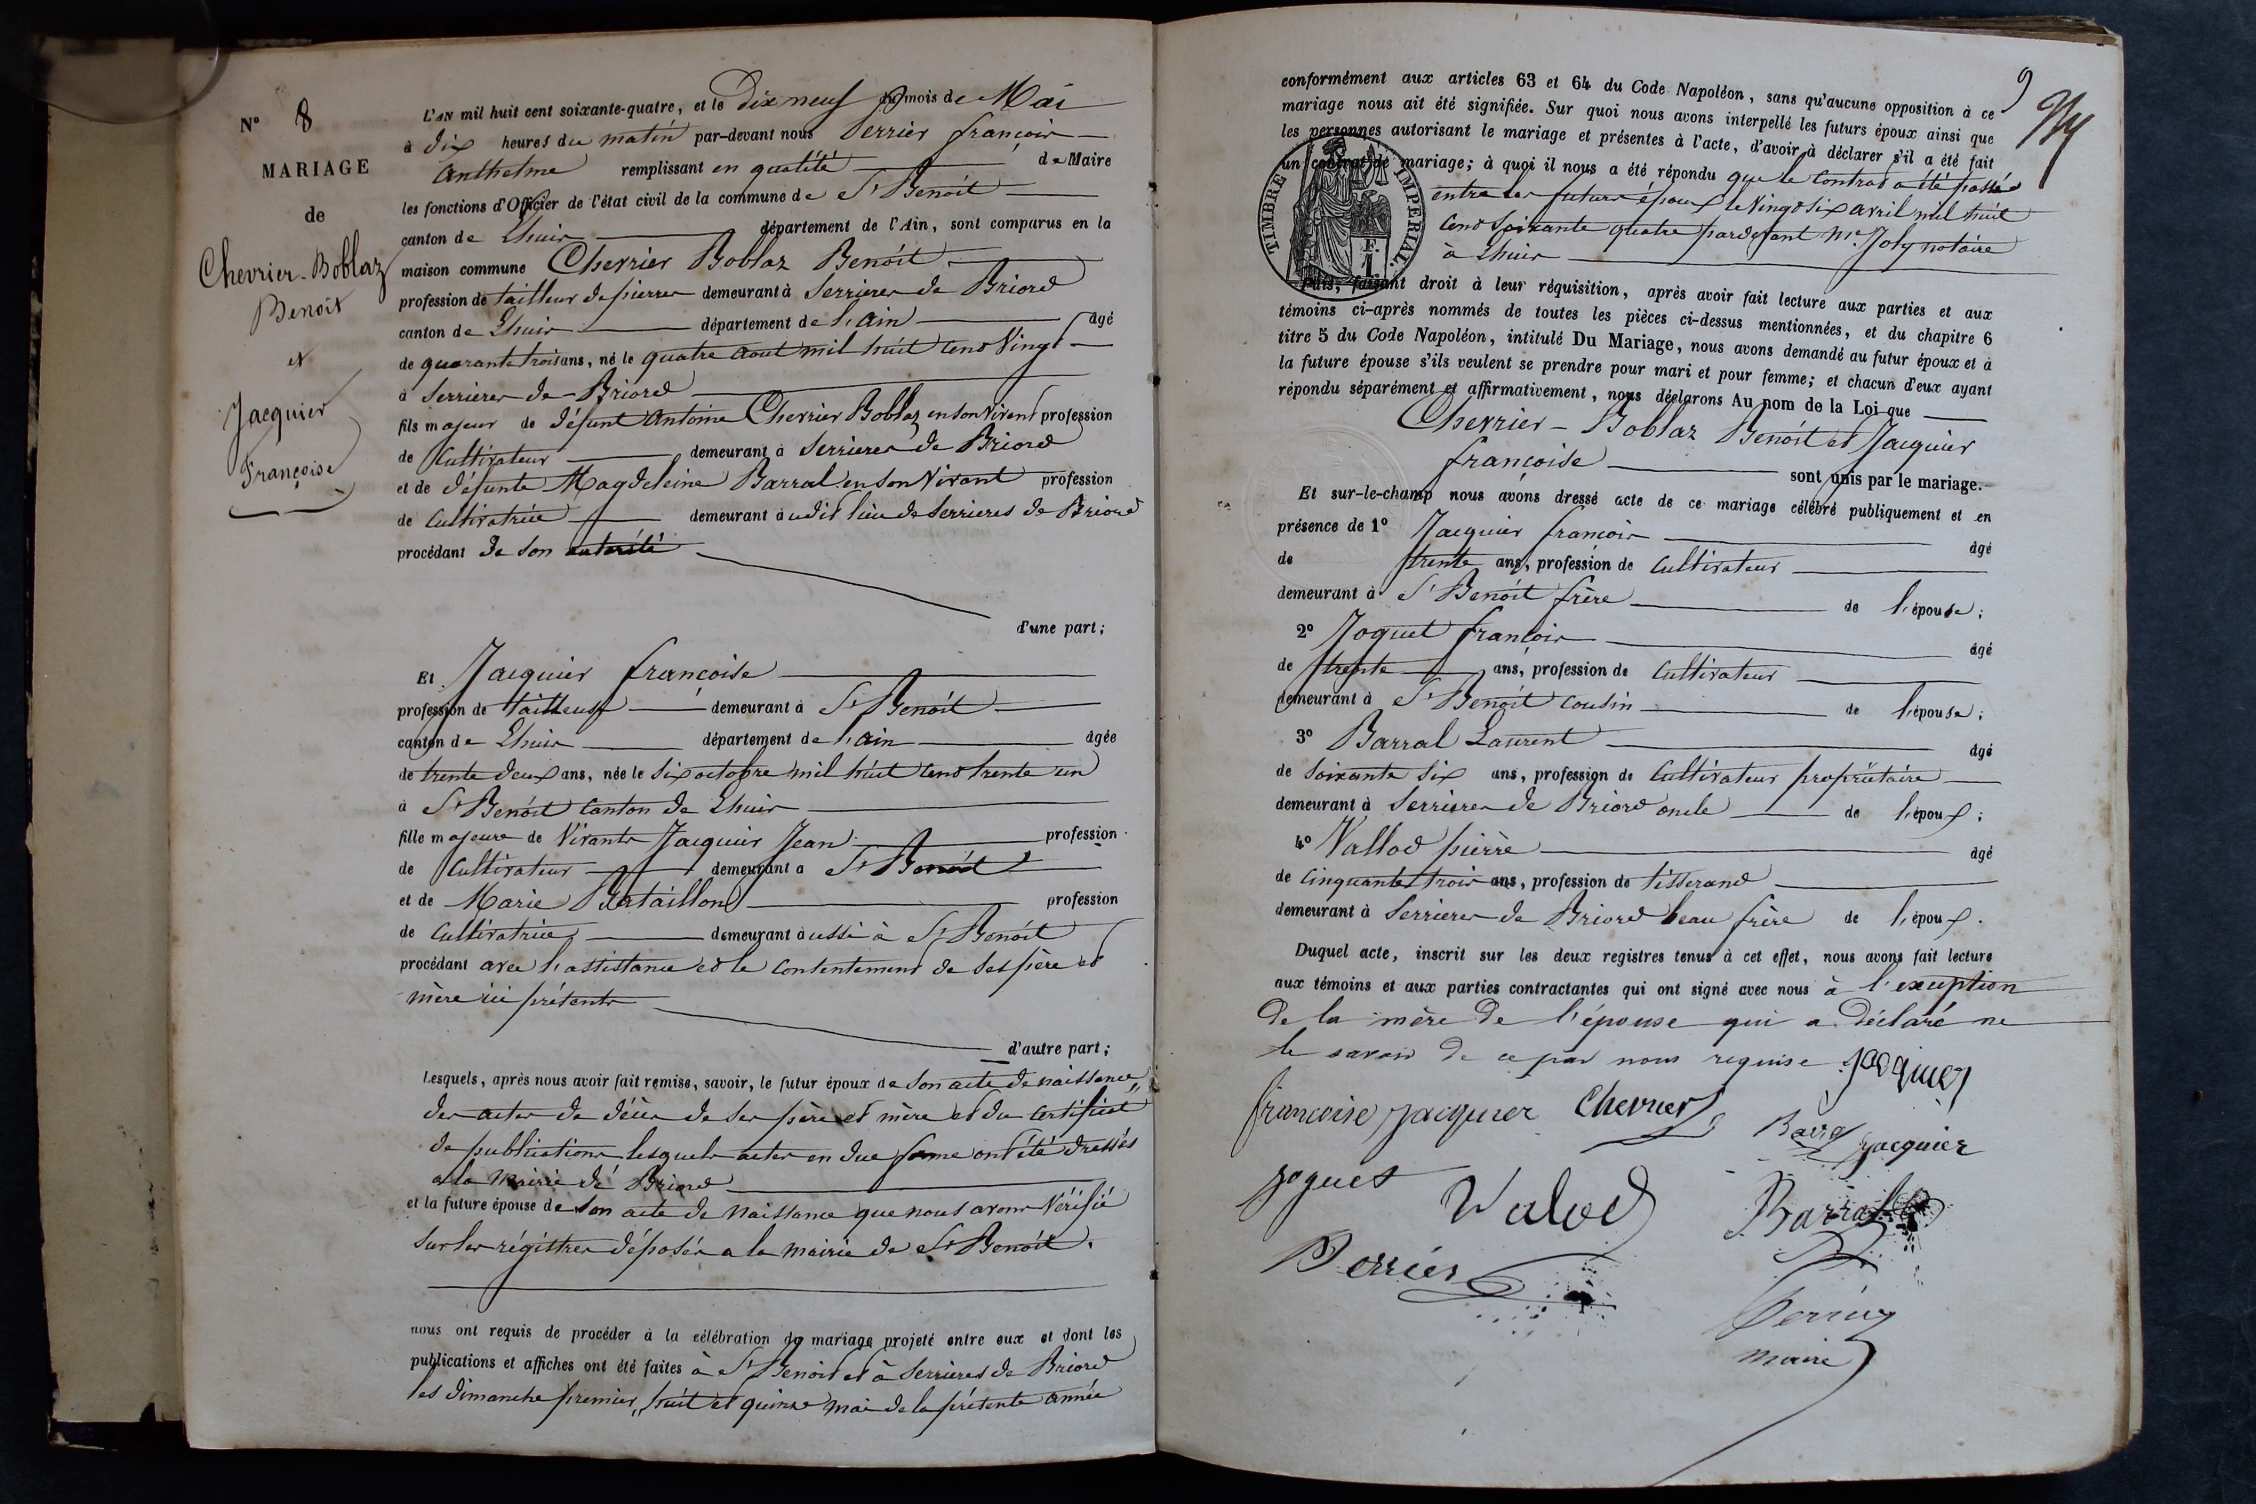 N° 8
MARIAGE
de
Chevrier-Boblaz
Benoit
et
Jacquier
Françoise
L'AN mil huit cent soixante-quatre, et le Dix neuf du mois de Mai
à dix heures du matin par-devant nous Perrier françois
Anthelme remplissant en qualité de Maire
les fonctions d'Officier de l'état civil de la commune de St Benoit
canton de Lhuis département de l'Ain, sont comparus en la
maison commune Chevrier Boblaz Benoit
profession de tailleur de pierres demeurant à Serrieres de Briord
canton de Lhuis département de l'ain âgé
de quarante trois ans, né le quatre aout mil huit cent Vingt
à Serrieres de Briord
fils majeur de défunt Antoine Chevrier Boblaz en son vivant profession
de Cultivateur demeurant à Serrieres de Briord
et de défunte Magdeleine Barral en son Vivant profession
de Cultivatrice demeurant audit lieu de Serrieres de Briord
procédant de son autorité
d'une part;
Et Jacquier françoise
profession de tailleuse demeurant à St Benoit
canton de Lhuis département de l'ain âgée
de trente deux ans, née le six octobre mil huit cent trente un
à St Benoit canton de Lhuis
fille majeure de Vivants Jacquier Jean profession
de Cultivateur demeurant à St Benoit
et de Marie Bertaillon profession
de Cultivatrice demeurant aussi à St Benoit
procédant avec l'assistance et le consentement de ses père et
mère ici présents
d'autre part;
Lesquels, après nous avoir fait remise, savoir, le futur époux de son acte de naissance,
des actes de décès de ses père et mère et du certificat
de publications lesquels actes en due forme ont été dressés
a la Mairie de Briord
et la future épouse de son acte de naissance que nous avons Vérifié
sur les régistres déposés a la mairie de St Benoit.
nous ont requis de procéder à la célébration du mariage projeté entre eux et dont les
publications et affiches ont été faites à St Benoit et à Serrieres de Briord
les dimanche premier, huit et quinze mai de la présente année
9
conformément aux articles 63 et 64 du Code Napoléon, sans qu'aucune opposition à ce
mariage nous ait été signifiée. Sur quoi nous avons interpellé les futurs époux ainsi que
les personnes autorisant le mariage et présentes à l'acte, d'avoir à déclarer s'il a été fait
un contrat de mariage; à quoi il nous a été répondu que le Contrat a été passé
entre les futurs époux le Vingt six avril mil huit
cent soixante quatre pardevant Me Joly notaire
à Lhuis
TIMBRE IMPERIAL
F.
1
Puis, faisant droit à leur réquisition, après avoir fait lecture aux parties et aux
témoins ci-après nommés de toutes les pièces ci-dessus mentionnées, et du chapitre 6
titre 5 du Code Napoléon, intitulé Du Mariage, nous avons demandé au futur époux et à
la future épouse s'ils veulent se prendre pour mari et pour femme; et chacun d'eux ayant
répondu séparément et affirmativement, nous déclarons Au nom de la Loi que
Chevrier-Boblaz Benoit et Jacquier
françoise sont unis par le mariage.
Et sur-le-champ nous avons dressé acte de ce mariage célébré publiquement et en
présence de 1° Jacquier françois âgé
de trente ans, profession de Cultivateur
demeurant à St Benoit frère de l'épouse;
2° Joguet françois âgé
de trente ans, profession de Cultivateur
demeurant à St Benoit cousin de l'épouse;
3° Barral Laurent âgé
de soixante six ans, profession de Cultivateur propriétaire
demeurant à Serrieres de Briord oncle de l'époux;
4° Vallod pierre âgé
de Cinquante trois ans, profession de tisserand
demeurant à Serrieres de Briord beau frère de l'époux.
Duquel acte, inscrit sur les deux registres tenus à cet effet, nous avons fait lecture
aux témoins et aux parties contractantes qui ont signé avec nous à l'exception
de la mère de l'épouse qui a déclaré ne
le savoir de ce par nous requise Jacquier
françoise jacquier Chevrier
jacquier
joguet Valod Barral
Perrier
maire